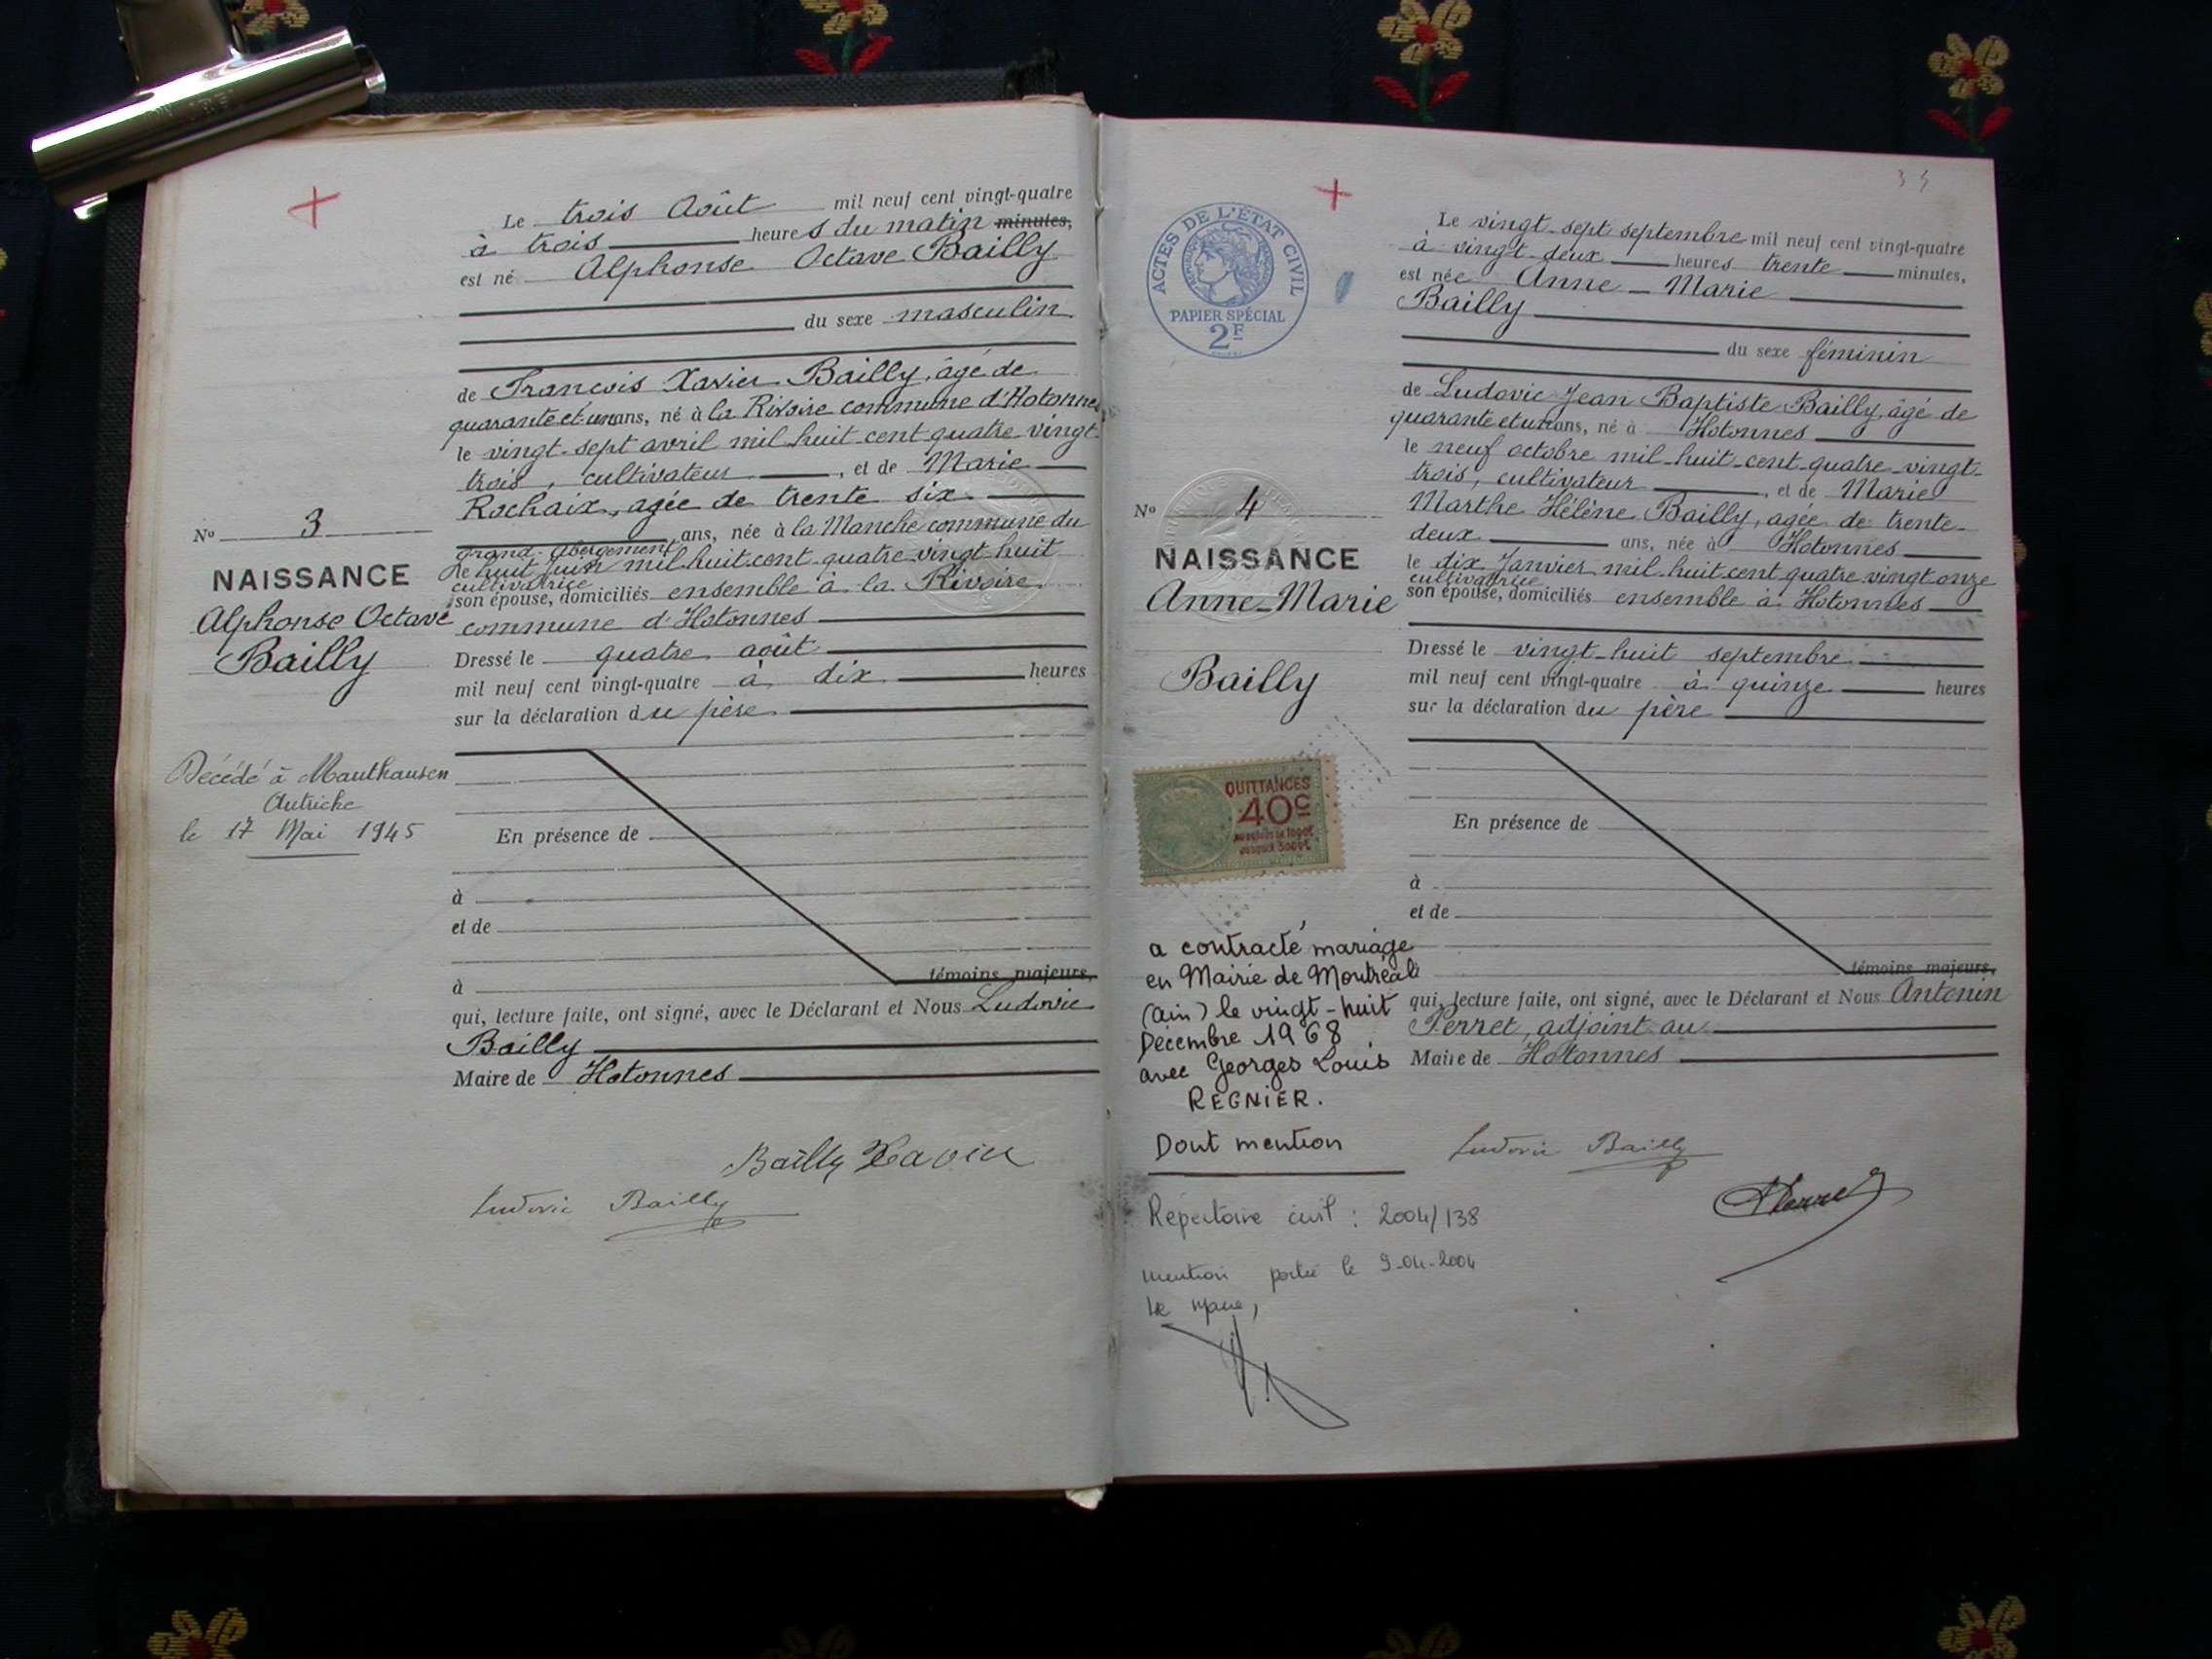 Le trois Août mil neuf cent vingt-quatre
à trois heures du matin minutes,
est né Alphonse Octave Bailly
du sexe masculin
de François Xavier Bailly, âgé de
quarante et un ans, né à la Rivoire commune d'Hotonnes
le vingt-sept avril mil huit cent quatre-vingt-
trois, cultivateur, et de Marie
Rochaix, agée de trente six
ans, née à la Manche commune du
Grand-Abergement
le huit juin mil huit cent quatre vingt huit
cultivatrice
son épouse, domiciliés ensemble à la Rivoire
commune d'Hotonnes
Dressé le quatre août
mil neuf cent vingt-quatre à dix heures
sur la déclaration du père
En présence de
à
et de
à témoins majeurs,
qui, lecture faite, ont signé, avec le Déclarant et Nous Ludovic
Bailly
Maire de Hotonnes
Bailly Xavier
Ludovic Bailly
No 3
NAISSANCE
Alphonse Octave
Bailly
Décédé à Mauthausen
Autriche
le 17 Mai 1945
ACTES DE L'ÉTAT CIVIL
PAPIER SPÉCIAL
2F
Le vingt-sept septembre mil neuf cent vingt-quatre
à vingt-deux heures trente minutes,
est née Anne-Marie
Bailly
du sexe féminin
de Ludovic Jean Baptiste Bailly, âgé de
quarante et un ans, né à Hotonnes
le neuf octobre mil-huit-cent-quatre-vingt-
trois, cultivateur, et de Marie
Marthe Hélène Bailly, agée de trente-
deux ans, née à Hotonnes
le dix Janvier mil-huit-cent quatre vingt onze
cultivatrice
son épouse, domiciliés ensemble à Hotonnes
Dressé le vingt-huit septembre
mil neuf cent vingt-quatre à quinze heures
sur la déclaration du père
En présence de
à
et de
témoins majeurs,
qui, lecture faite, ont signé, avec le Déclarant et Nous Antonin
Perret, adjoint au
Maire de Hotonnes
Ludovic Bailly
APerret
No 4
NAISSANCE
Anne-Marie
Bailly
QUITTANCES
40c
a contracté mariage
en Mairie de Montréal
(ain) le vingt-huit
Décembre 1968
avec Georges Louis
REGNIER.
Dont mention
Répertoire civil : 2004/138
mention portée le 9-04-2004
Le Maire,